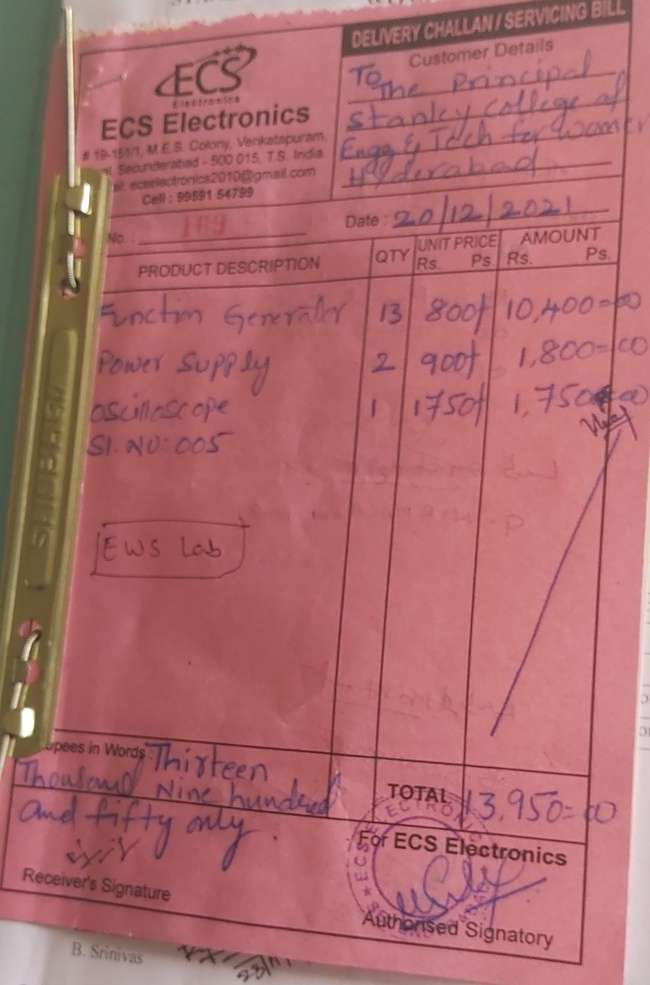 DELIVERY CHALLAN / SERVICING BILL
ECS
Electronics
ECS Electronics
# 19-151/1, M.E.S. Colony, Venkatapuram,
Secunderabad - 500 015, T.S. India.
ecselectronics2010@gmail.com
Cell : 99591 54799
Customer Details
To
The Principal
Stanley College of
Engg & Tech for Women
Hyderabad
No. : 109
Date : 20/12/2021
PRODUCT DESCRIPTION QTY UNIT PRICE Rs. Ps. AMOUNT Rs. Ps.
Function Generator 13 800/- 10,400=00
Power Supply 2 900/- 1,800=00
Oscilloscope 1 1750/- 1,750=00
Sl. NO: 005
EWS Lab
upees in Words Thirteen
Thousand Nine hundred
and fifty only.
TOTAL 13,950=00
For ECS Electronics
Receiver's Signature
Authorised Signatory
B. Srinivas